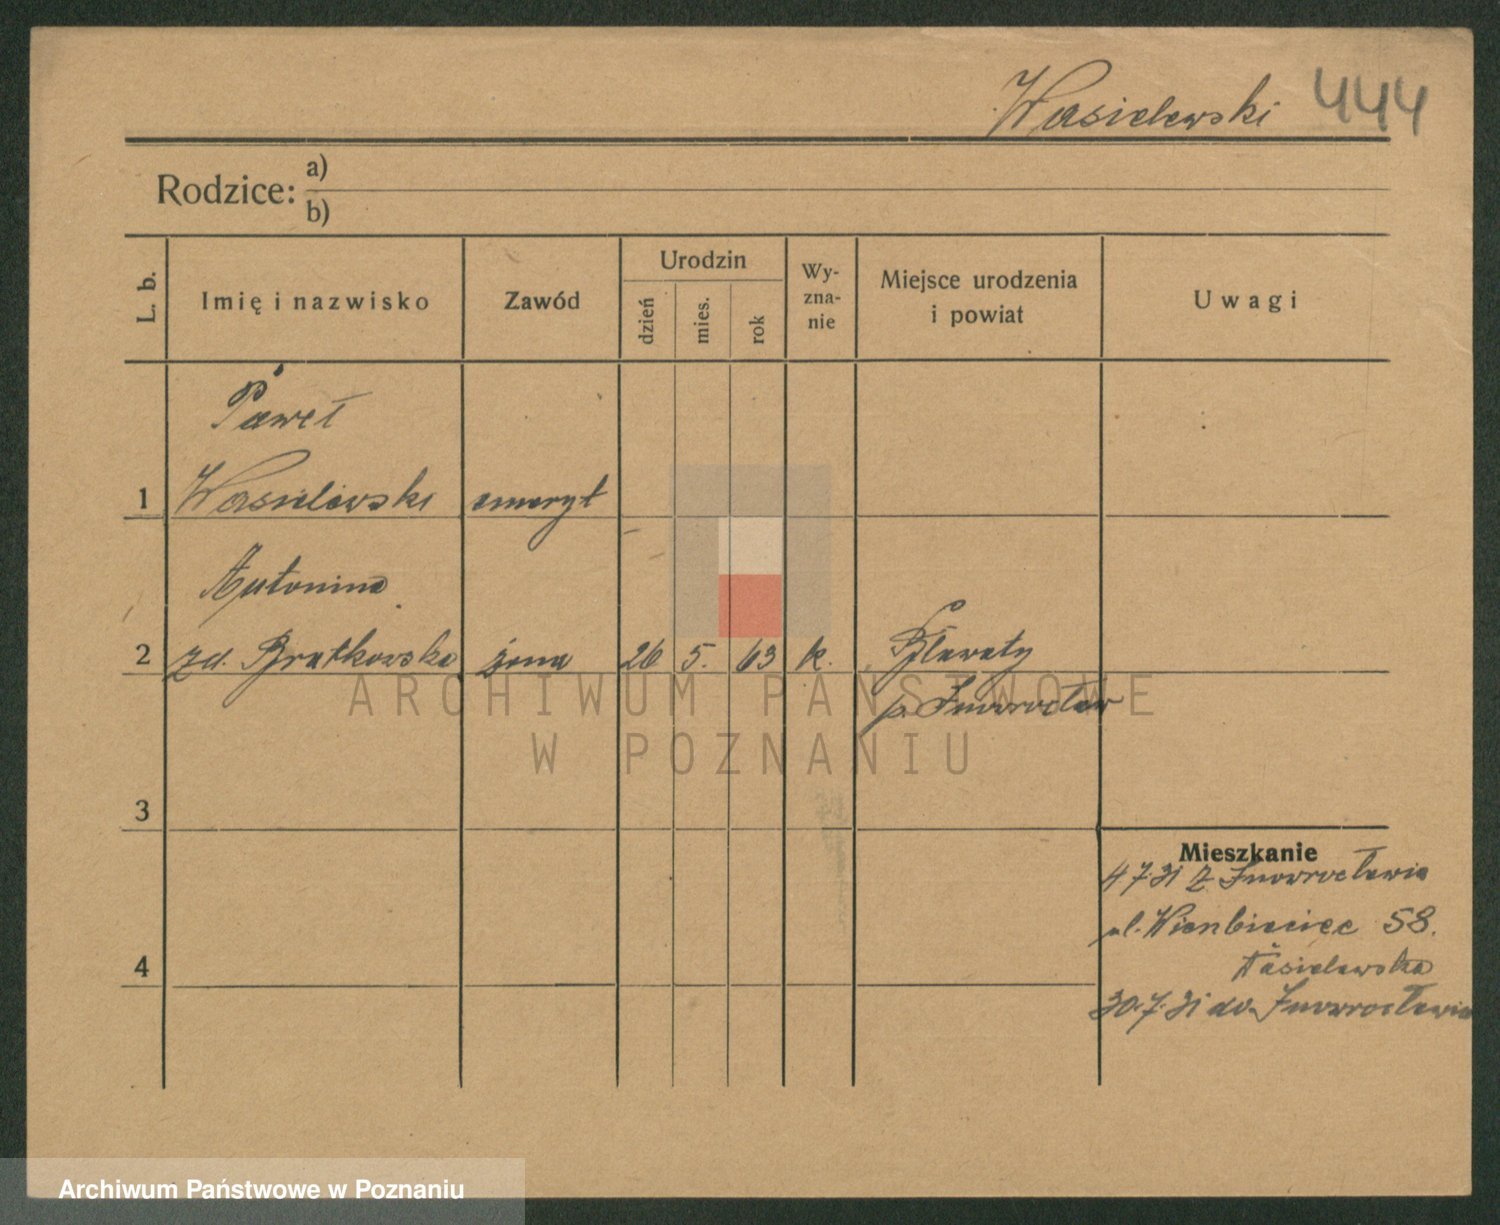 Wasielewski 444
Rodzice: a)
b)
L. b.
Imię i nazwisko
Zawód
Urodzin
dzień
mies.
rok
Wy-
zna-
nie
Miejsce urodzenia
i powiat
Uwagi
Paweł
1 Wasielewski emeryt
Antonina
2 zd. Bratkowska żona 26 5. 63 k.
p. Inowrocław
ARCHIWUM PAŃSTWOWE
W POZNANIU
3
Mieszkanie
4 7. 31 z Inowrocławia
ul. 58.
4 Wasielewska
30. 7. 31 do Inowrocławia
Archiwum Państwowe w Poznaniu